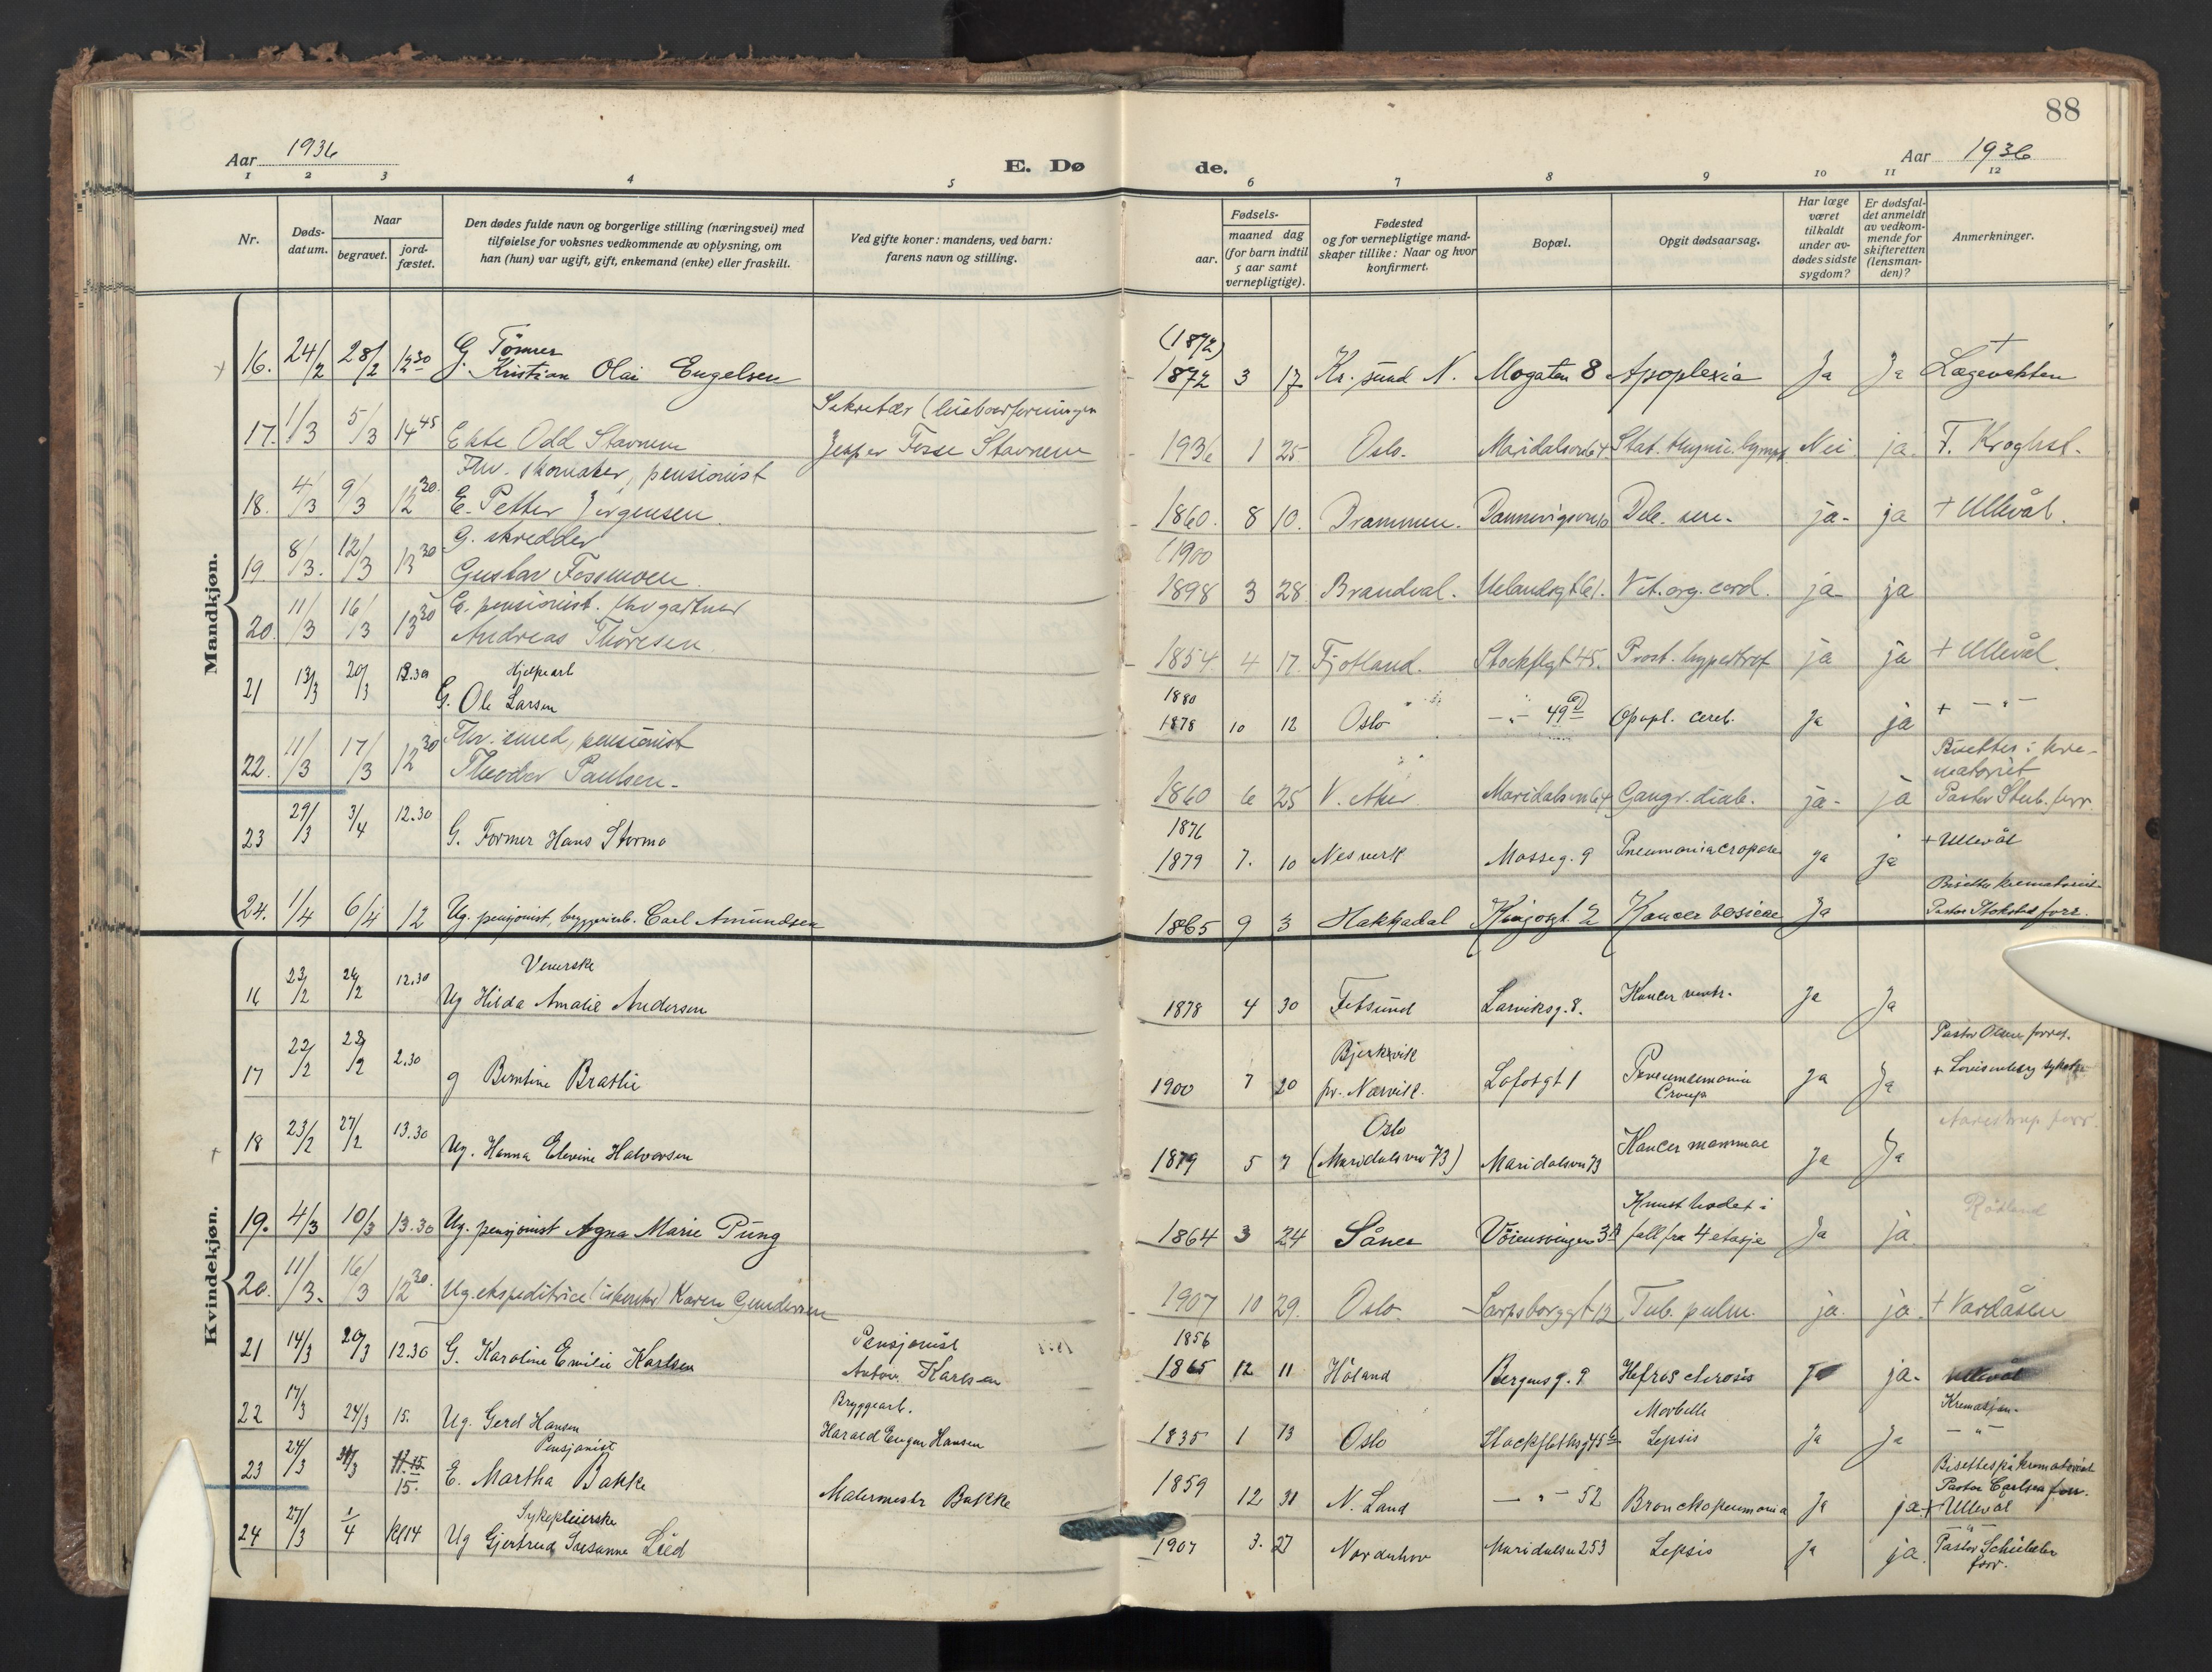 88
Aar 1936
E. Dø
de.
Aar 1936
1 2 3 4 5 6 7 8 9 10 11 12
Nr.
Døds-
datum.
Naar
begravet.
jord-
fæstet.
Den dødes fulde navn og borgerlige stilling (næringsvei) med
tilføielse for voksnes vedkommende av oplysning, om
han (hun) var ugift, gift, enkemand (enke) eller fraskilt.
Ved gifte koner: mandens, ved barn:
farens navn og stilling.
Fødsels-
aar.
maaned dag
(for barn indtil
5 aar samt
vernepligtige).
Fødested
og for vernepligtige mand-
skaper tillike: Naar og hvor
konfirmert.
Bopæl.
Opgit dødsaarsag.
Har læge
været
tilkaldt
under av-
dødes sidste
sygdom?
Er dødsfal-
det anmeldt
av vedkom-
mende for
skifteretten
(lensman-
den)?
Anmerkninger.
Mandkjøn.
Tömrer (1872) +
16. 24/2 28/2 12 30 G. Kristian Olai Engelsen 1872 3 17 Kr. sund N. Mogaten 8 Apoplexia Ja Ja Lægevakten
Sekretær
17. 1/3 5/3 14 45 Odd Stavnem Jesper Stavnem 1936 1 25 Oslo. Maridalsvn 64 Stat. Nei ja.
Fhv. skomaker, pensionist
18. 4/3 9/3 12 30 E. Petter Jörgensen 1860. 8 10. Drammen. ja- ja + Ullevål.
G. skredder (1900
19 8/3. 12/3 13 30 Gustav Fossmoen. 1898 3 28 Brandval. Uelandsgt 61. Vit. org. cord. ja ja
E. pensionist. fhv gartner
20. 11/3 16/3 13 30 Andreas Thoresen. 1854 4 17. Fjotland. Stockflgt 45. Prost. hypertrof ja ja + Ullevål.
Hjelpearb 1880
21 13/3 20/3 12.30 G. Ole Larsen 1878 10 12 Oslo - " - 49 Apopl. cereb. Ja ja + - " -
Fhv. smed, pensionist Bisettes i kre-
matoriet
22. 11/3 17/3 12 30 Theodor Paulsen - 1860 6 25 V. Aker Maridalsvn 64 Gangr. diab. ja- ja Pastor Stub. forr.
1876 + Ullevål
23 29/3 3/4 12.30 G. Former Hans Stormo 1879 7. 10 Nesverk Mosseg. 9 Pneumonia ja ja
Bisettes krematoriet
24. 1/4 6/4 12 Ug. pensjonist, bryggeriarb. Carl Amundsen 1865 9 3 Hakkadal Kingosgt. 2 Kancer vesicae Ja Pastor Stoksted forr.
Kvindekjøn.
Veverske
16 23/2 26/2 12.30 Ug Hilda Amalie Andersen 1878 4 30 Fetsund Larviksg. 8. Kancer ventr. Ja Ja
Bjerkvik Pastor Olsen forret.
17 22/2 28/2 2.30 g Berntine Bratlie 1900 7 20 pr. Narvik. Lofotgt 1 Croup. Ja Ja + Lovisenberg sykehs.
Oslo forr.
18 23/2 27/2 13.30 Ug. Hanna Elevine Halvorsen 1879 5 7 (Maridalsvn 73) Maridalsvn 73 Kancer mammae Ja Ja
Knust hodet i
19. 4/3 10/3 13.30 Ug. pensjonist Agna Marie Pung 1864 3 24 Såner Vöiensvingen 3 fall fra 4 etasje Ja ja
20. 11/3. 16/3 12 30. Ug. ekspeditrice Karen Gundersen 1907 10 29. Oslo. Sarpsborggt 12 Tub. pulm. ja. ja + Vardåsen
Pensjonist 1856
21 14/3 20/3 12.30 G. Karoline Emilie Karlsen Anton Karlsen 1865 12 11 Höland Bergensg. 9 Ja ja- Ullevål
Bryggearb. Morbilli Kremasjon.
22 17/3 24/3 15. Ug. Gerd Hansen Harald Eugen Hansen 1835 1 13 Oslo Stockflethsg 45 Sepsis Ja Ja - " -
Pensjonist Bisettes på krematoriet
Pastor Carlsen forr.
23 24/3 15. E. Martha Bakke Malermestr Bakke 1859 12 31 N. Land - " - 52 Bronchopneumonia Ja ja. + Ullevål
Sykepleierske - " -
24 27/3 1/4 kl 14 Ug Gjertrud Susanne Lied 1907 3. 27 Norderhov Maridalsvn 253 Sepsis Ja ja. Pastor Schielder
forr.